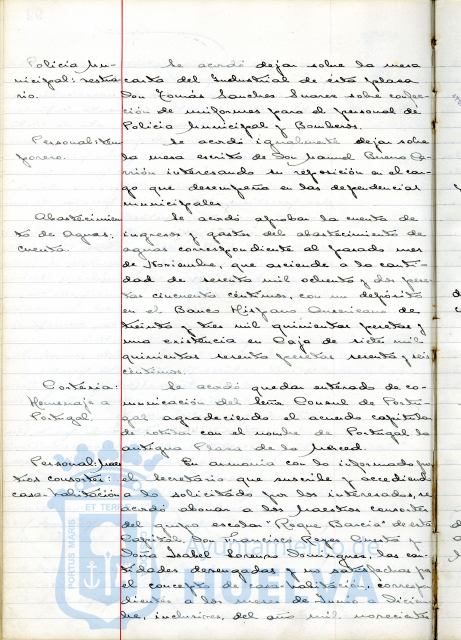 Policía Mu- Se acordó dejar sobre la mesa
nicipal: vestua carta del Industrial de ésta plaza
rio. Don Tomás Sanches Suares sobre confec-
ción de uniformes para el personal de
Policía Municipal y Bomberos.
Personal: tem Se acordó igualmente dejar sobre
porero. la mesa escrito de Don Manuel Bueno
interesando su reposición en el car-
go que desempeña en las dependencias
municipales
Abastecimien Se acordó aprobar la cuenta de
to de Aguas. ingresos y gastos del abastecimiento de
cuenta. aguas correspondiente al pasado mes
de Noviembre, que asciende a la canti-
dad de sesenta mil ochenta y dos pese-
tas cincuenta céntimos, con un depósito
en el Banco Hispano Americano de
treinta y tres mil quinientas pesetas y
una existencia en Caja de siete mil
quinientas sesenta pesetas sesenta y seis
céntimos.
Cortesía: Se acordó quedar enterado de co-
Homenaje a municación del Señor Consul de Portu-
Portugal gal agradeciendo el acuerdo capitular
de rotular con el nombre de Portugal la
antigua Plaza de la Merced.
Personal: Maes En armonia con lo informado por
tros consortes: el Secretário que suscribe y accediendo
casa-habitación a lo solicitado por los interesados, se
acordó abonar a los Maestros consortes
del grupo escolar "Roque Barcia" de esta
Capital, Don Francisco Reyes y
Doña Isabel Lorenzo Domingues, las can-
tidades devengadas y no satisfechas por
el concepto de casa-habitación, correspon-
dientes a los meses de Junio a Diciem-
bre, inclusives, del año mil novecientos
PORTUS MARIS ET TERRÆ
Ayuntamiento de
HUELVA